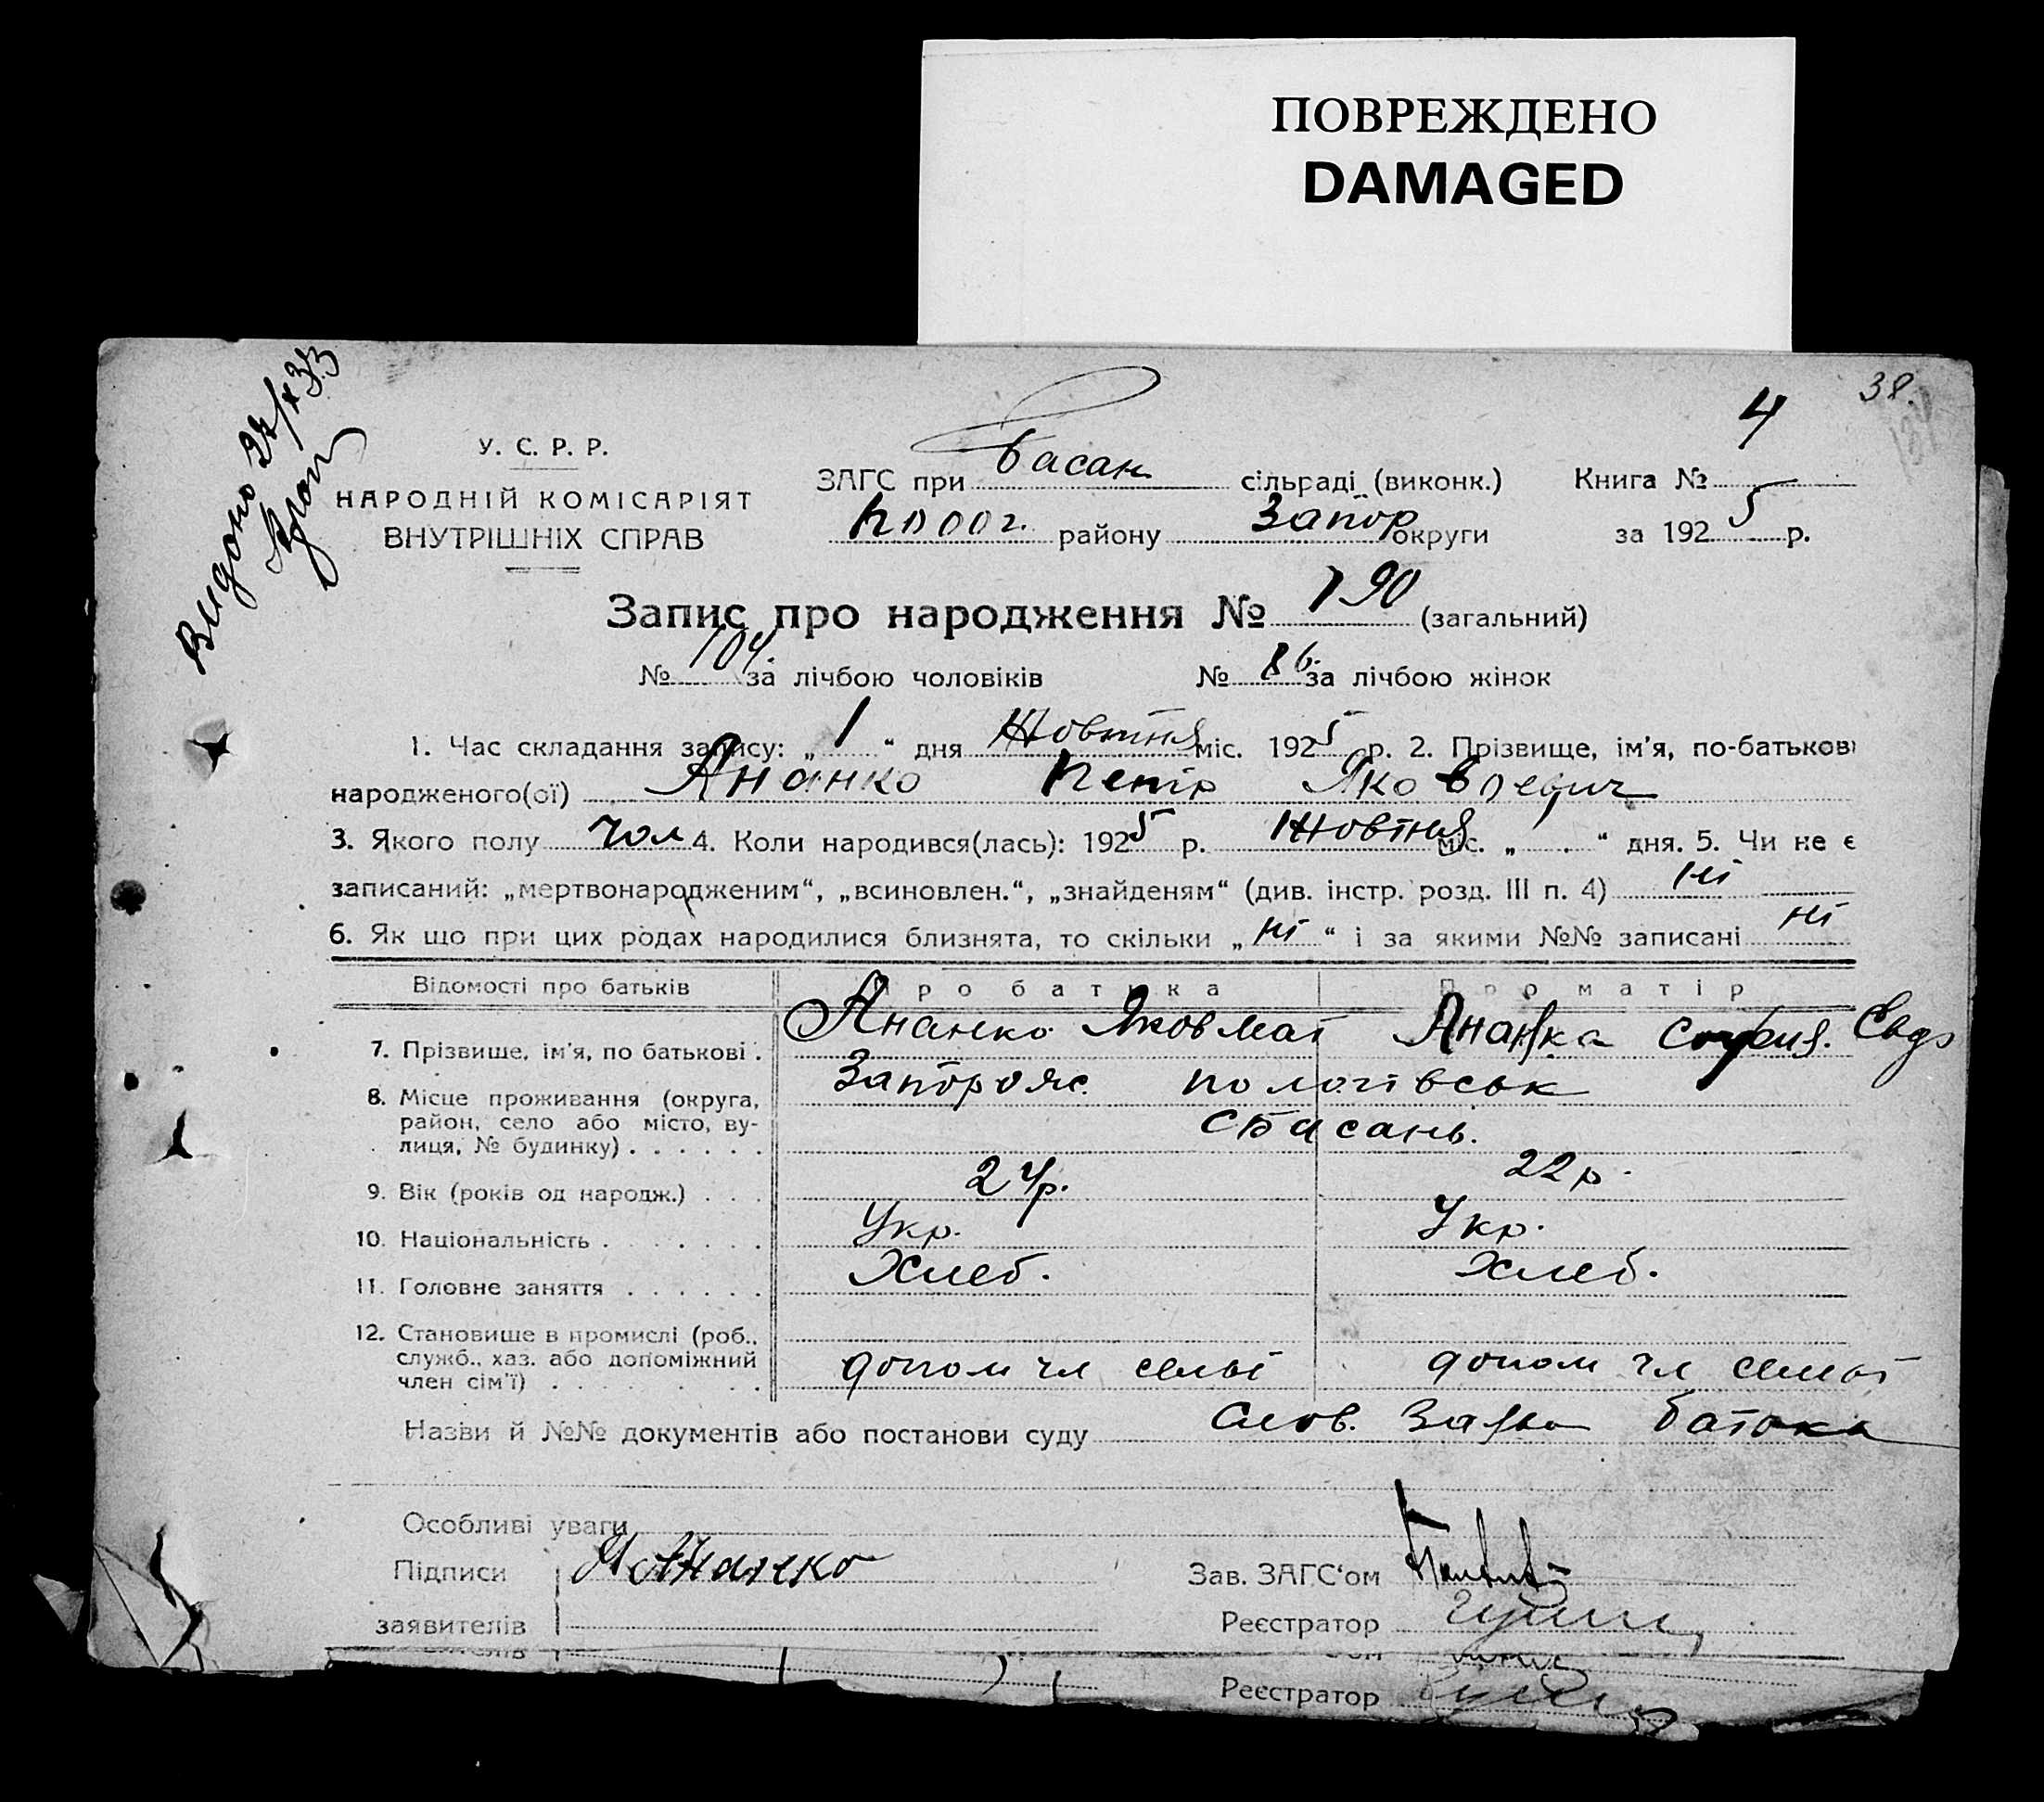 ПОВРЕЖДЕНО
DAMAGED
38.
4
Видоно 27/X 33
У. С. Р. Р.
НАРОДНІЙ КОМІСАРІЯТ
ВНУТРІШНІХ СПРАВ
ЗАГС при Басан сільраді (виконк.) Книга №
району Запор округи за 1925 р.
Запис про народження № 190 (загальний)
№ 104. за лічбою чоловіків № 86. за лічбою жінок
1. Час складання запису: „ 1 “ дня Жовтня міс. 1925 р. 2. Прізвище, ім'я, по-батькові
народженого(ої) Ананко Петр Яковлевич
3. Якого полу чол 4. Коли народився(лась): 1925 р. Жовтня міс. „ . “ дня. 5. Чи не є
записаний: „мертвонародженим“, „всиновлен.“, „знайденям“ (див. інстр. розд. III п. 4) ні
6. Як що при цих родах народилися близнята, то скільки „ ні “ і за якими №№ записані ні
Відомості про батьків Про батька Про матір
7. Прізвище, ім'я, по батькові . Ананко Яков Мат Ананка София. Евдо
8. Місце проживання (округа, Запорояс. пологівськ
район, село або місто, ву- с Басань.
лиця, № будинку) . . . . . .
9. Вік (років од народж.) . . . 24р. 22р.
10. Національність . . . . . Укр. Укр.
11. Головне заняття . . . . . . Хлеб. Хлеб.
12. Становище в промислі (роб.,
служб., хаз. або допоміжний допом чл семьі допом чл семьі
член сім'ї) . . . . .
Назви й №№ документів або постанови суду Слов. Заява батька
Особливі уваги
Підписи Я Ананко Зав. ЗАГС‘ом
заявителів Реєстратор
Реєстратор